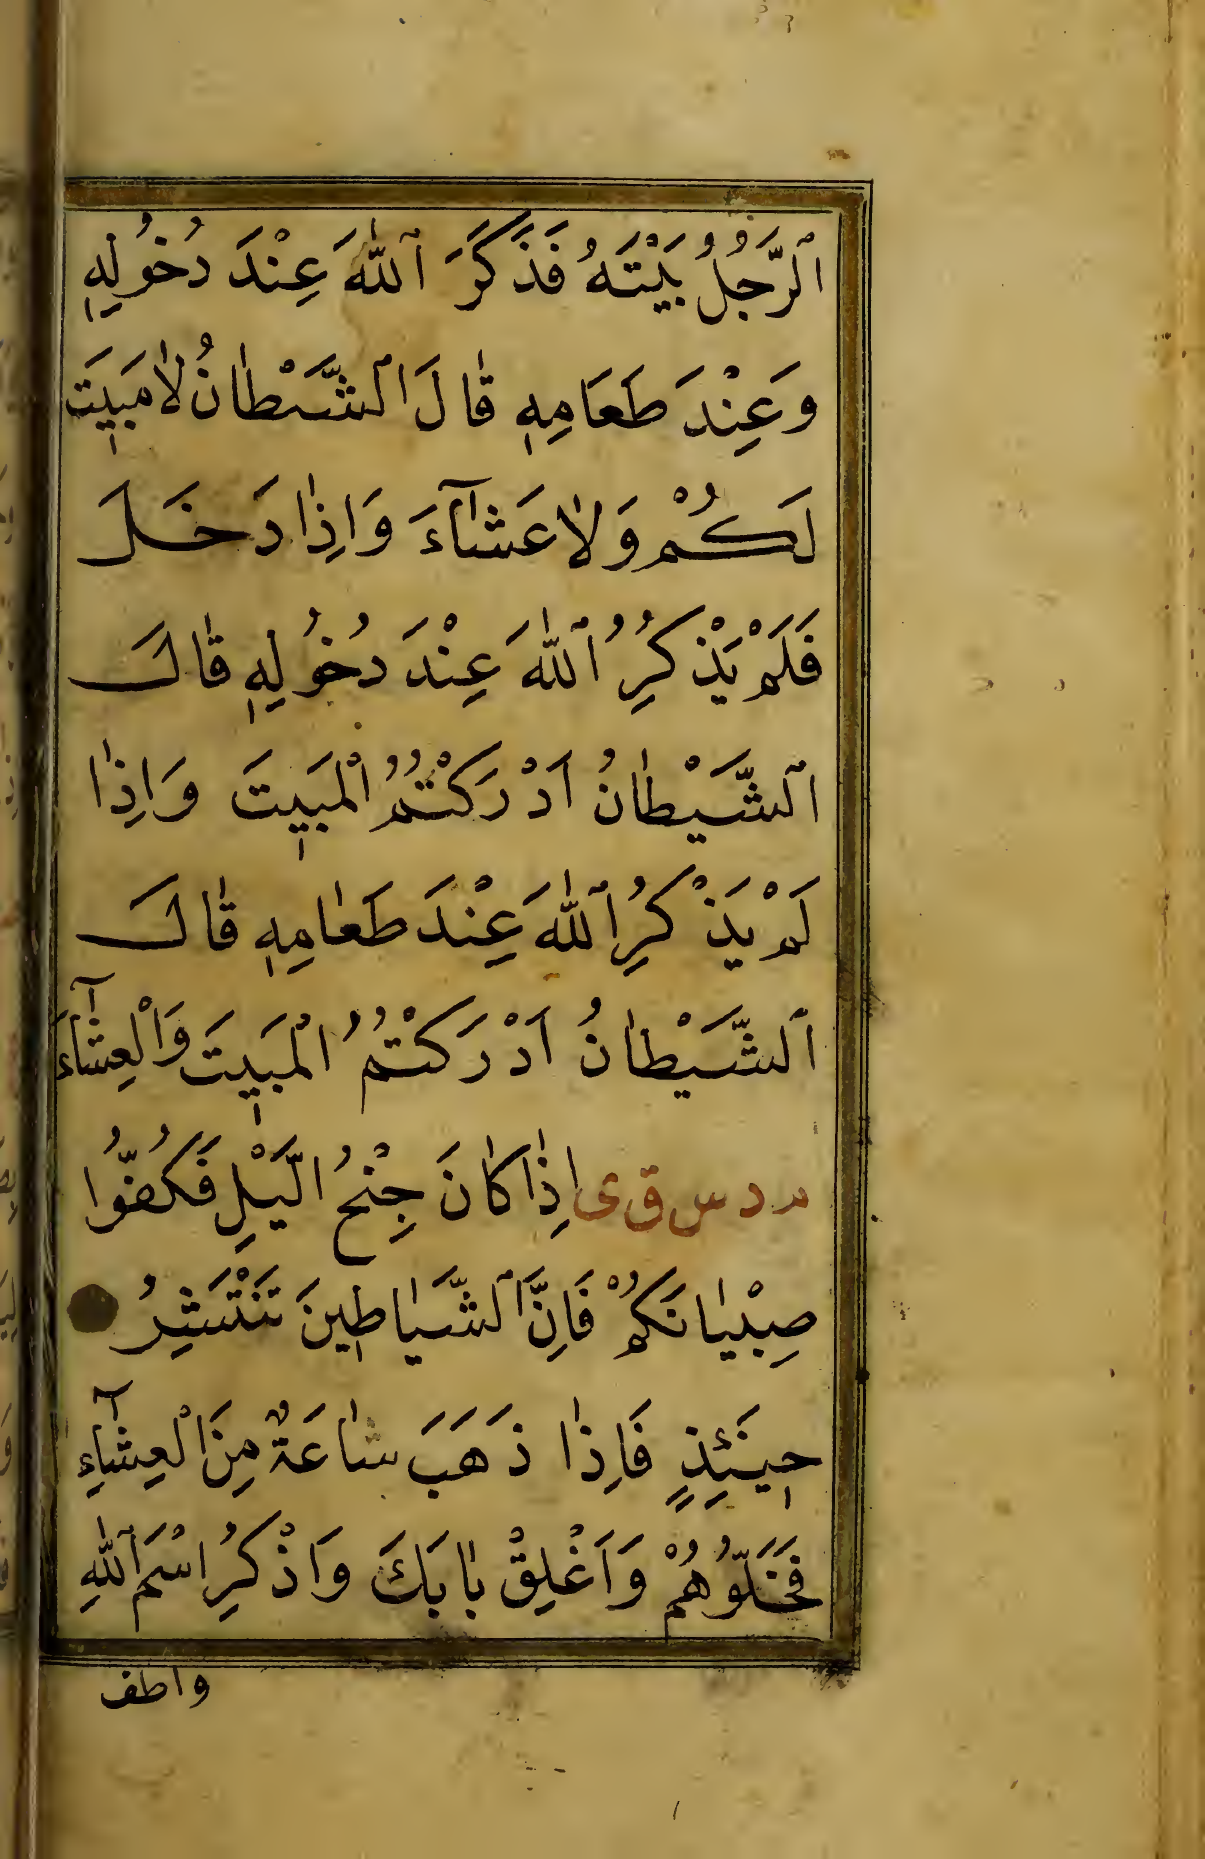 اَلرَّجُلُ بَيْتَهُ فَذَكَرَ اَللّٰهَ عِنْدَ دُخُولِهٖ
وَعِنْدَ طَعَامِهٖ قٰالَ الشَّيْطٰانُ لٰا مَبٖيتَ
لَكُمْ وَلٰا عَشٰٓاءَ وَاِذٰا دَخَلَ
فَلَمْ يَذْكُرِ اللّٰهَ عِنْدَ دُخُولِهٖ قٰالَ
اَلشَّيْطٰانُ اَدْرَكْتُمُ الْمَبٖيتَ وَاِذٰا
لَمْ يَذْكُرِ اللّٰهَ عِنْدَ طَعٰامِهٖ قٰالَ
اَلشَّيْطٰانُ اَدْرَكْتُمُ الْمَبٖيتَ وَالْعِشٰٓاءَ
م د س ق ى اِذٰا كٰانَ جِنْحُ الَّيْلِ فَكُفُّوا
صِبْيٰانَكُمْ فَاِنَّ الشَّيٰاطٖينَ تَنْتَشِرُ
حٖينَئِذٍ فَاِذٰا ذَهَبَ سٰاعَةٌ مِنَ الْعِشٰٓاءِ
فَخَلُّوهُمْ وَاَغْلِقْ بٰابَكَ وَاذْكُرِ اسْمَ اللّٰهِ
واطف